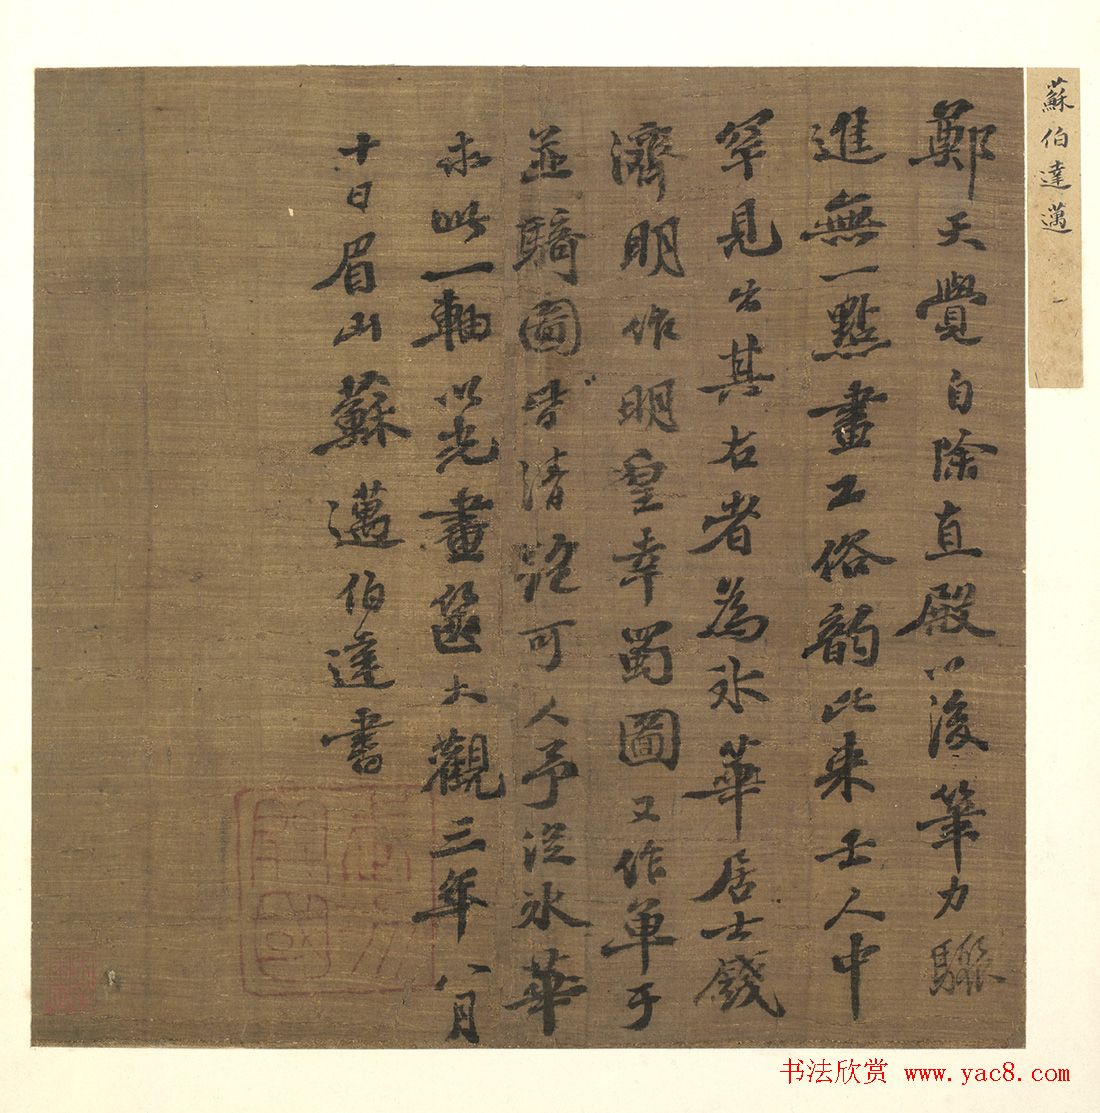 蘇伯達邁
鄭天覺自除直殿以後筆力驟
進無一點畫工俗韵比來士人中
罕見出其右者為冰華居士錢
濟明作明皇幸蜀圖又作單于
並騎圖皆清絶可人予從冰華
求此一軸以光畫篋大觀三年八月
十日眉山蘇邁伯達書
书法欣赏 www.yac8.com